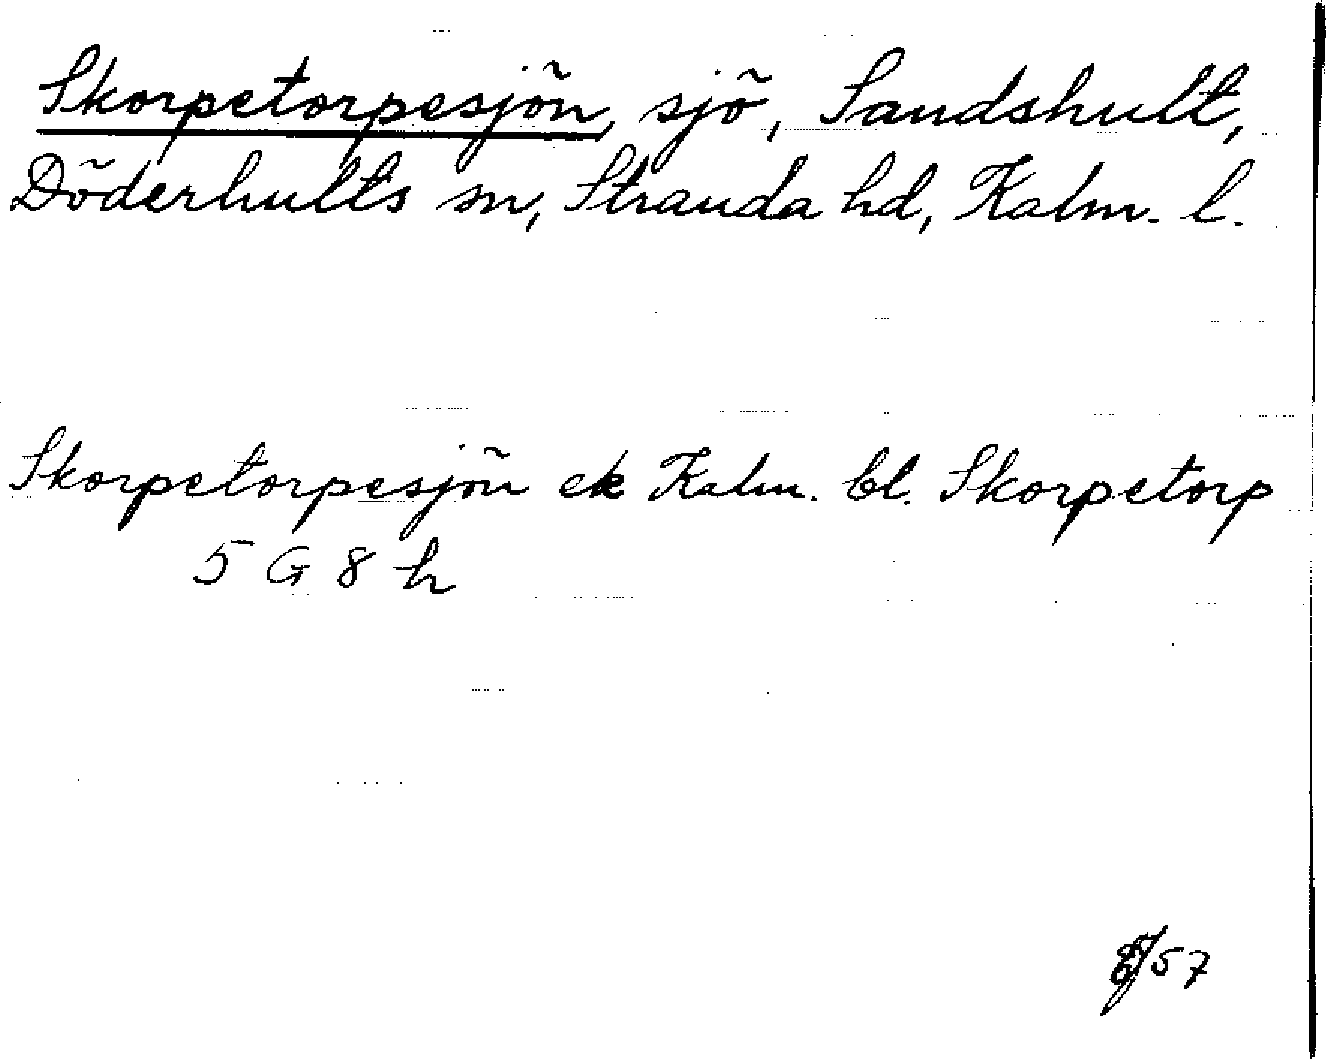 Skorpetorpesjön, sjö, Sandshult,
Döderhults sn, Stranda hd, Kalm. l.
Skorpetorpesjön ek Kalm. bl. Skorpetorp
5 G 8 h
57